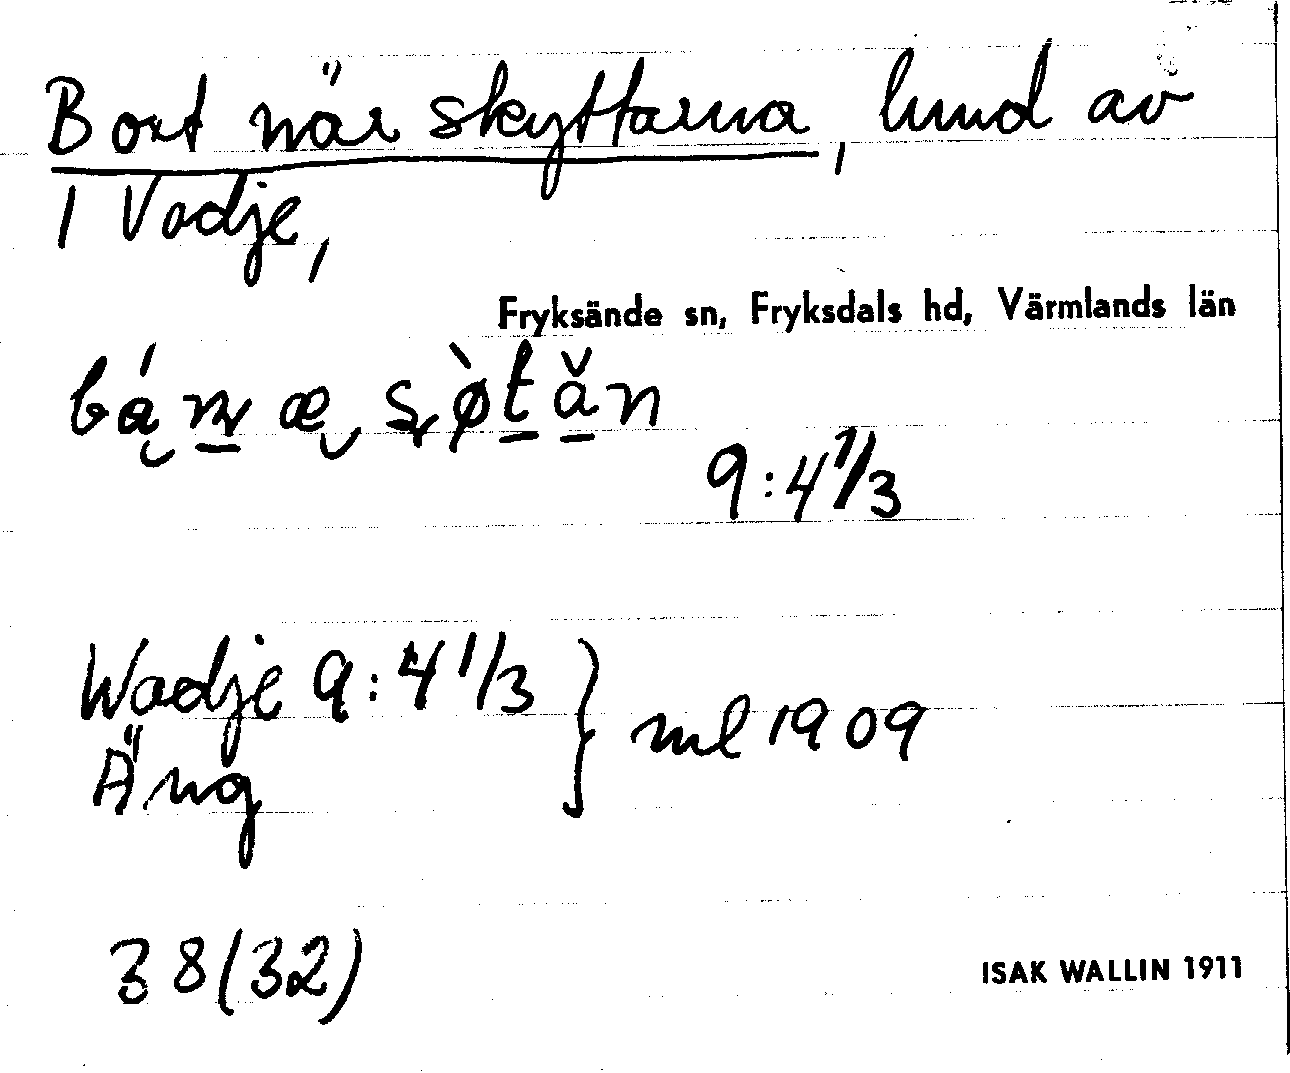 Bort när skyttarna, lund av
1 Vadje,
Fryksände sn, Fryksdals hd, Värmlands län
9:4 1/3
Wadje 9:4 1/3 } ml 1909
Äng
38(32)
ISAK WALLIN 1911